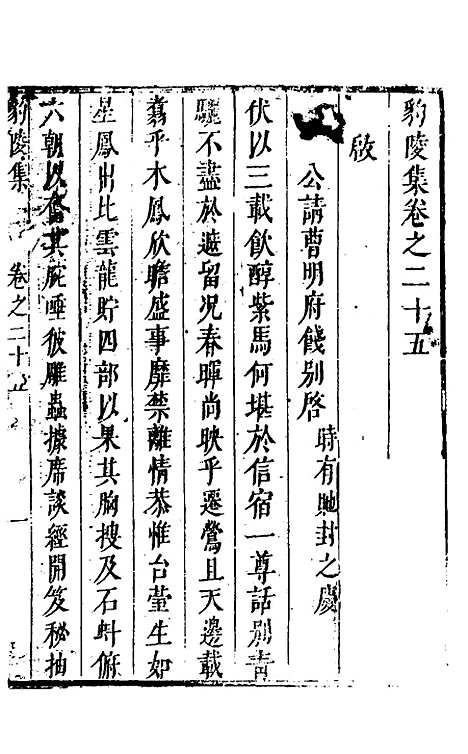 豹陵集卷之二十五
啟
公請曹明府餞別啓 時有貤封之慶
伏以三載飲醇紫馬何堪於信宿一尊話別青
驪不盡於遮留况春暉尚映乎遷鶯且天邊載
翥乎木鳳欣瞻盛事靡禁離情恭惟台瑩生如
星鳳出比雲龍貯四部以果其胸搜及石蚪俯
六朝以 其 唾彼雕蟲據席談經開笈秘抽
豹陵集 卷之二十五 一